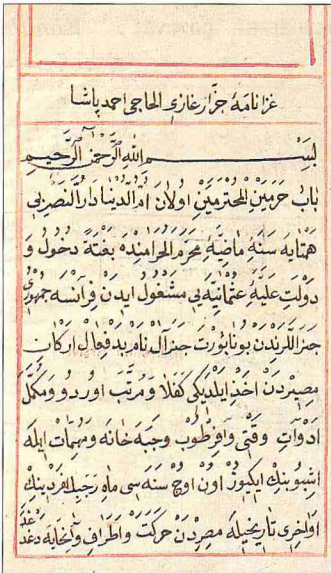 غزانامهٔ جزار غازی الحاجی احمد پاشا
بسم الله الرحمن الرحیم
باب حرمین المحترمین اولان ام الدنیا دار النصر بی
همتایه سنهٔ ماضیه محرم الحرامنده بغتةً دخول و
دولت علیهٔ عثمانیه یی مشغول ایدن فرانسه جمهوری
جنراللرندن بوناپورت جنرال نام بدفعال ارکان
مصردن اخذ ایلدیکی کفلا و مرتب اوردو و مکمل
ادوات و قتی وافر طوب و جبه خانه و مهمات ایله
اشبو بیك ایکیوز اون اوچ سنه سی ماه رجب الفردینك
اواخری تاریخیله مصردن حرکت و اطراف و انحایه دغدغه